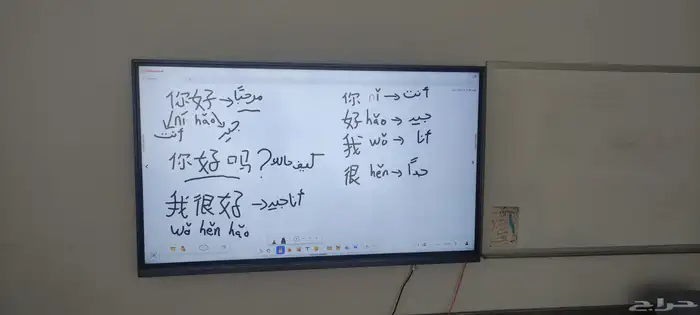 你好 → مرحبًا
ní hǎo
أنت جيد
你好吗? كيف حالك
我很好 → أنا جيد
wǒ hěn hǎo
你 nǐ → أنت
好 hǎo → جيد
我 wǒ → أنا
很 hěn → جداً
حراج